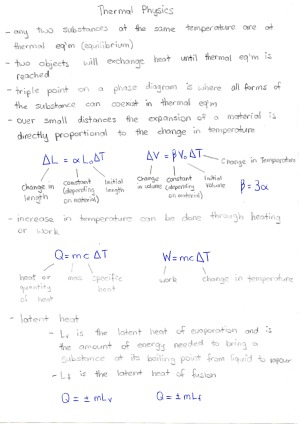 Thermal Physics
- any two substances at the same temperature are at
thermal eq'm (equilibrium)
- two objects will exchange heat until thermal eq'm is
reached
- triple point on a phase diagram is where all forms of
the substance can coexist in thermal eq'm
- over small distances the expansion of a material is
directly proportional to the change in temperature
ΔL = αL₀ΔT
ΔV = βV₀ΔT
Change in Temperature
Change in length
constant (depending on material)
Initial length
Change in volume
constant (depending on material)
Initial Volume
β = 3α
- increase in temperature can be done through heating
or work
Q = mcΔT
W = mcΔT
heat or quantity of heat
mass
specific heat
work
change in temperature
- latent heat
- Lᵥ is the latent heat of evaporation and is
the amount of energy needed to bring a
substance at its boiling point from liquid to vapour
- Lf is the latent heat of fusion
Q = ± mLᵥ
Q = ± mLf